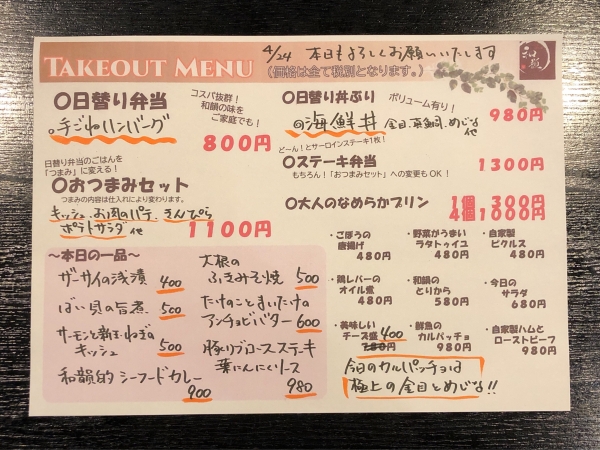 4/24 本日もよろしくお願いいたします
TAKEOUT MENU
(価格は全て税別となります。)
和韻
〇日替り弁当
コスパ抜群!
和韻の味を
ご家庭でも!
・手ごねハンバーグ
800円
日替り弁当のごはんを
「つまみ」に変える!
〇おつまみセット
つまみの内容は仕入れにより変わります。
キッシュ、お肉のパテ、きんぴら
ポテトサラダ 他
1100円
〇日替り丼ぶり
ボリューム有り!
980円
◎海鮮丼 金目、真鯛、めじな 他
どーん!とサーロインステーキ1枚!
〇ステーキ弁当
1300円
もちろん!「おつまみセット」への変更もOK!
〇大人のなめらかプリン
1個 300円
4個1000円
〜本日の一品〜
ザーサイの浅漬 400
ばい貝の旨煮 500
サーモンと新玉ねぎの
キッシュ 500
和韻的シーフードカレー
900
大根の
ふきみそ焼 500
たけのことまいたけの
アンチョビバター 600
豚リブロースステーキ
葉にんにくソース
980
・ごぼうの
唐揚げ
480円
・野菜がうまい
ラタトゥイユ
480円
・自家製
ピクルス
480円
・鶏レバーの
オイル煮
480円
・和韻の
とりから
580円
・今日の
サラダ
680円
・美味しい
チーズ盛 400
780円
・鮮魚の
カルパッチョ
980円
・自家製ハムと
ローストビーフ
980円
今日のカルパッチョは
極上の金目とめじな!!